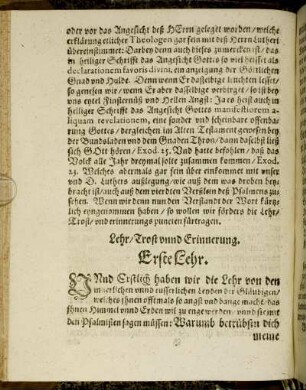 oder vor das Angesicht deß HErrn gelegt worden/ welche
erklärung etlicher Theologen gar fein mit deß Herrn Lutheri
übereinstimmet: Dorbey denn auch dieses zumercken ist/ das
in heiliger Schrifft das Angesicht Gottes so viel heisset als
declarationem favoris divini, ein anzeigung der Göttlichen
Gnad vnd Huld. Denn wenn Er dasselbige leuchten lesset/
so genesen wir/ wenn Er aber dasselbige verbirget/ so ist bey
uns eytel Finsternüß vnd Hellen Angst: Ja es heist auch in
heiliger Schrifft das Angesicht Gottes manifestiorem a-
liquam revelationem, eine sonder vnd scheinbare offenba-
rung Gottes/ dergleichen im Alten Testament gewesen bey
der Bundsladen vnd dem Gnaden Thron/ dann daselbst ließ
sich GOtt hören/ Exod. 25. Vnd hatte befohlen/ daß das
Volck alle Jahr dreymal solte zusammen kommen/ Exod.
23. Welches abermals gar fein über einkommet mit unser
vnd D. Luthers außlegung/ wie auß dem was droben bey-
bracht/ auch auß dem vierdten Verßlein deß Psalmens zu
sehen. Wenn wir denn nun den Verstandt der Wort kürtz-
lich eyngenommen haben/ so wollen wir förders die Lehr/
Trost/ vnd erinnerungs puncten fürtragen.
Lehr/ Trost vnnd Erinnerung.
Erste Lehr.
VNnd Erstlich haben wir die Lehr von den
innerlichen vnnd eusserlichen Leyden der Gläubigen/
welches jhnen offtmals so angst vnd bange macht/ das
jhnen Himmel vnnd Erden wil zu enge werden/ vnnd sie mit
den Psalmisten sagen müssen: Warumb betrübstu dich
meine